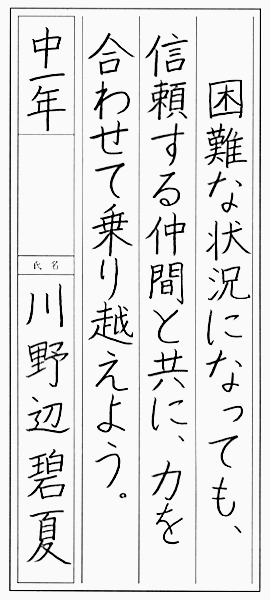 困難な状況になっても、
信頼する仲間と共に、力を
合わせて乗り越えよう。
中一年
氏名
川野辺碧夏